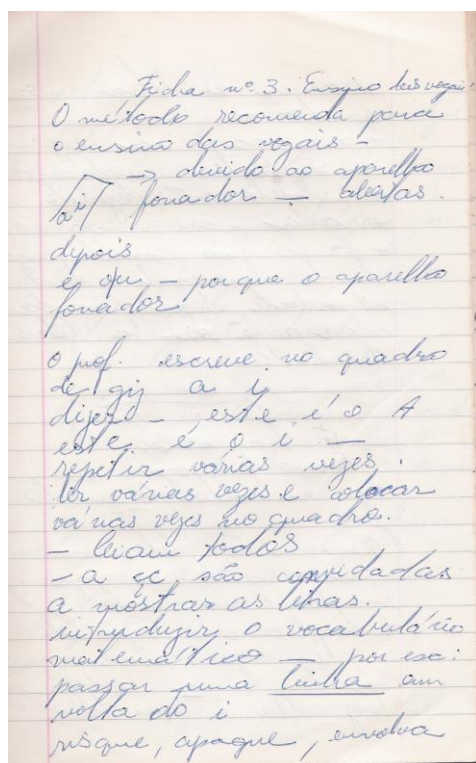 Ficha nº 3. Ensino das vogais
O método recomenda para
o ensino das vogais -
→ devido ao aparelho
a i fonador — abertas.
depois
e o u - porque o aparelho
fonador
o prof. escreve no quadro
de giz a i
dizer - este é o A
este é o i -
repetir várias vezes.
ler várias vezes e colocar
várias vezes no quadro.
- leiam todos
- a çç são convidadas
a mostrar as letras.
introduzir o vocabulário
matemático — por exe:
passar uma linha em
volta do i
risque, apague, envolva